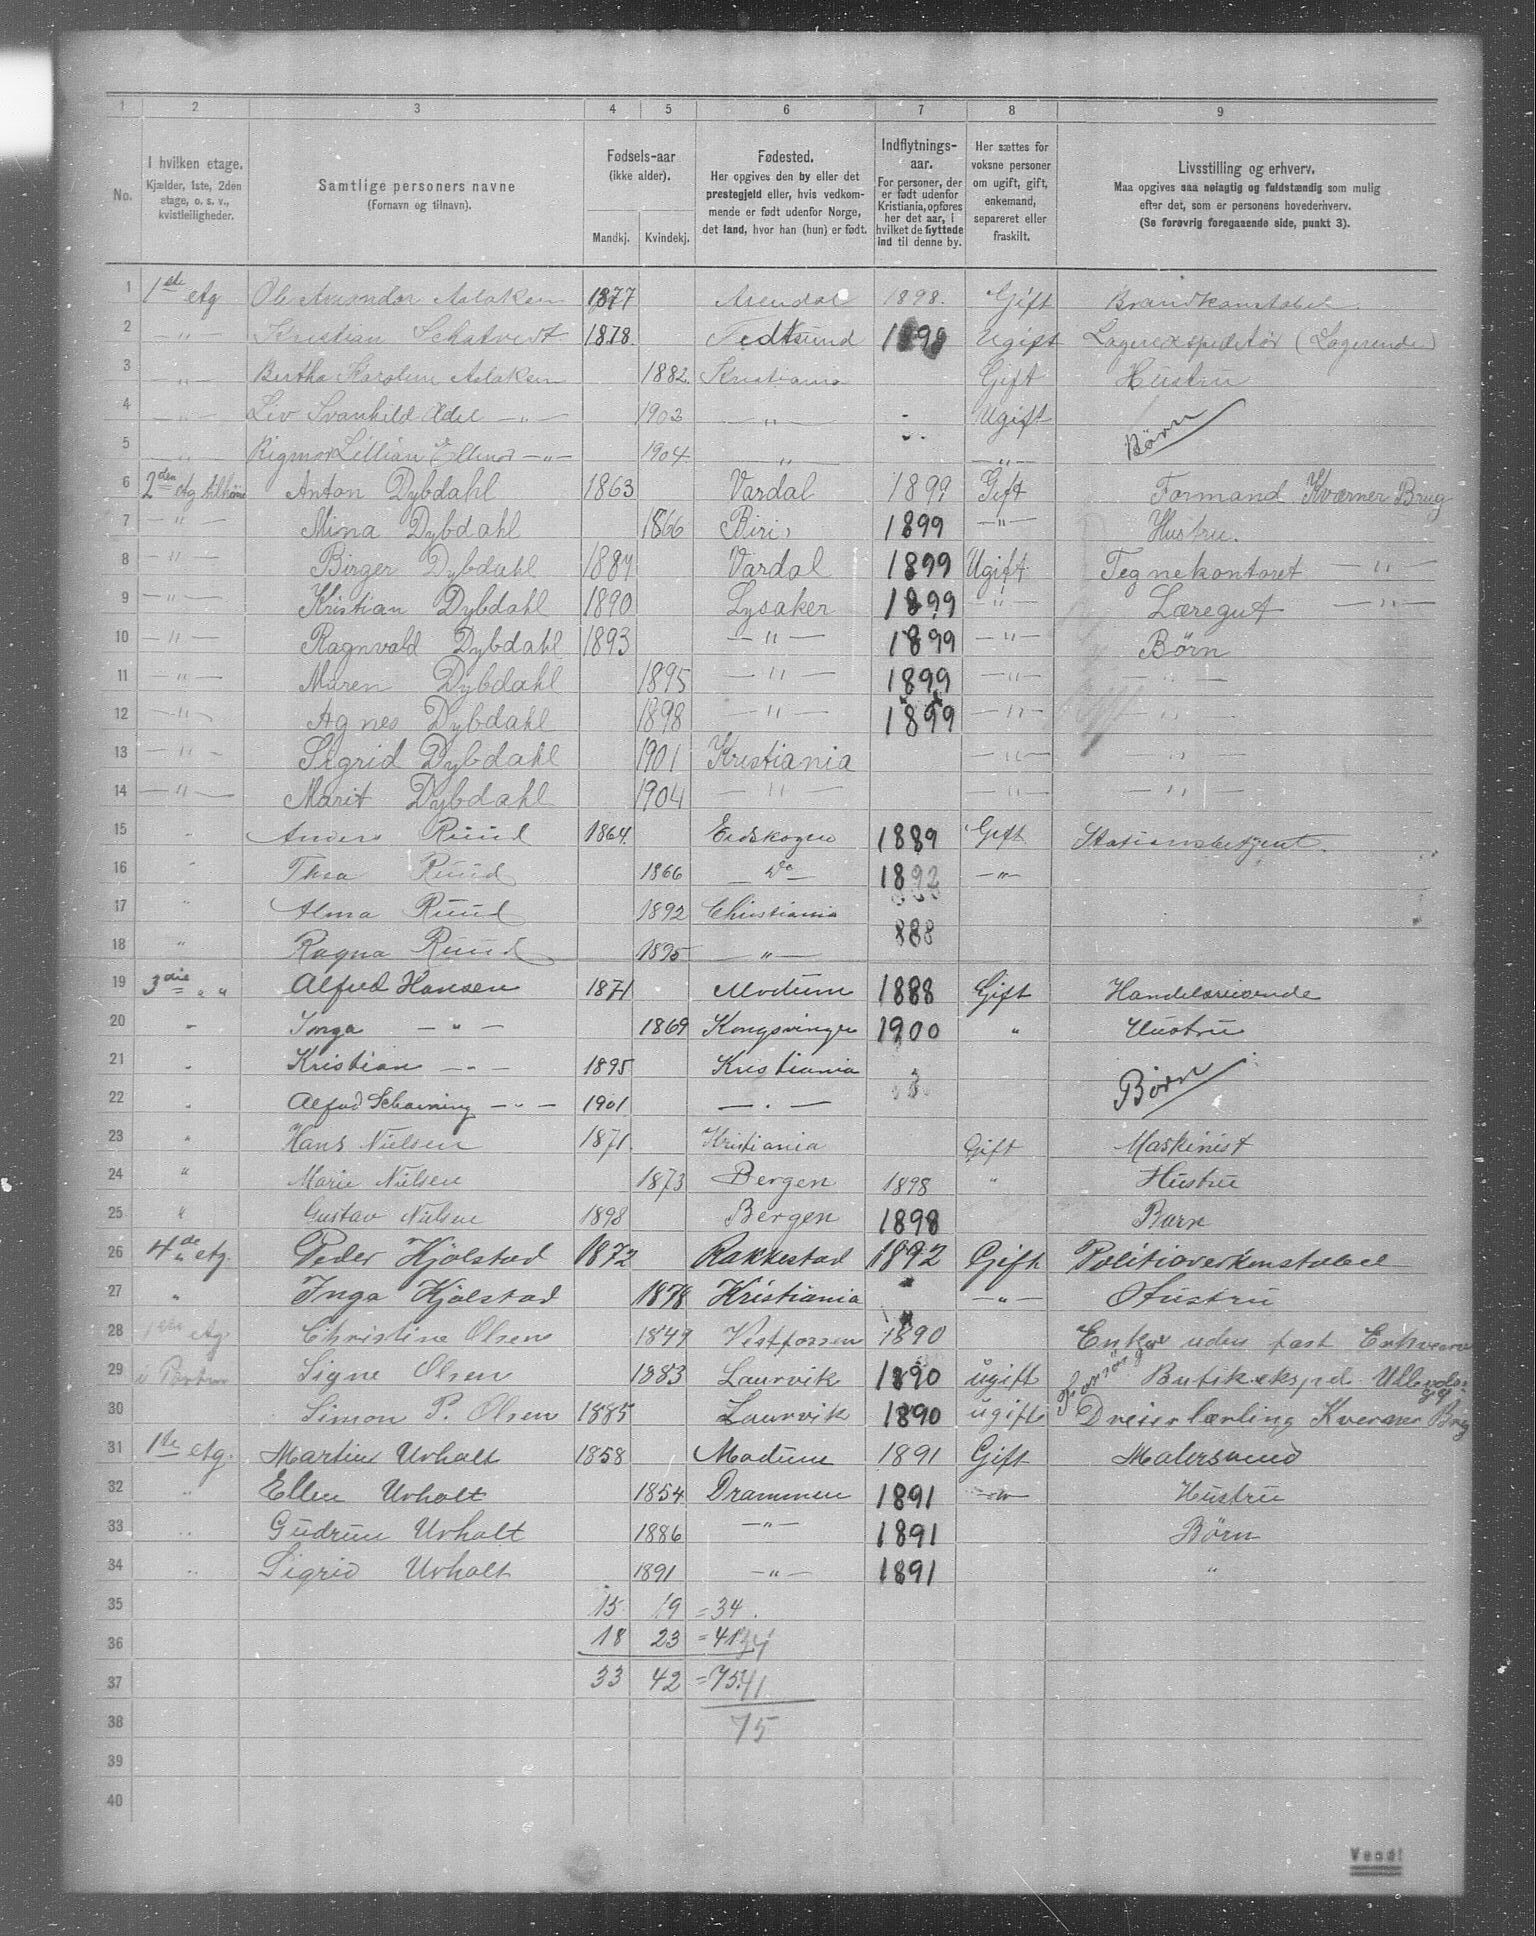 1 2 3 4 5 6 7 8 9
No.
I hvilken etage.
Kjælder, 1ste, 2den
etage, o. s. v.,
kvistleiligheder.
Samtlige personers navne
(Fornavn og tilnavn).
Fødsels-aar
(ikke alder).
Mandkj. Kvindekj.
Fødested.
Her opgives den by eller det
prestegjeld eller, hvis vedkom-
mende er født udenfor Norge,
det land, hvor han (hun) er født.
Indflytnings-
aar.
For personer, der
er født udenfor
Kristiania, opføres
her det aar, i
hvilket de flyttede
ind til denne by.
Her sættes for
voksne personer
om ugift, gift,
enkemand,
separeret eller
fraskilt.
Livsstilling og erhverv.
Maa opgives saa nøiagtig og fuldstændig som mulig
efter det, som er personens hovederhverv.
(Se forøvrig foregaaende side, punkt 3).
1 1ste etg Ole Amandor Aslaksen 1877 Arendal 1898. Gift Brandkonstabel.
2 — " — Kristian 1878. 1898 Ugift Lagerexpeditør
3 — " — Bertha Karoline Aslaksen 1882. Kristiania Gift Hustru
4 — " — Liv Svanhild — " — 1902 — " — Ugift Børn
5 — " — Rigmor Lillian Ellinor — " — 1904 — " — — " —
6 2den etg Anton Dybdahl 1863 Vardal 1899 Gift Formand Kværner Brug
7 — " — Mina Dybdahl 1866 Biri 1899 — " — Hustru.
8 — " — Birger Dybdahl 1887 Vardal 1899 Ugift Tegnekontoret — " —
9 — " — Kristian Dybdahl 1890 Lysaker 1899 — " — Læregut — " —
10 — " — Ragnvald Dybdahl 1893 — " — 1899 — " — Børn
11 — " — Maren Dybdahl 1895 — " — 1899 — " — — " —
12 — " — Agnes Dybdahl 1898 — " — 1899 — " — — " —
13 — " — Sigrid Dybdahl 1901 Kristiania — " — "
14 — " — Marit Dybdahl 1904 — " — — " — — " —
15 " Anders Ruud 1864. Eidskogen 1889 Gift Stationsbetjent.
16 " Thea Ruud 1866 — Do — 1892 — " —
17 " Alma Ruud 1892 Christiania
18 " Ragna Ruud 1895 — " — 888
19 3die " " Alfred Hansen 1871 Modum 1888 Gift Handelsreisende
20 " Inga — " — 1869 Kongsvinger 1900 " Hustru
21 " Kristian — " — 1895 Kristiania Børn
22 " Alfred — " — 1901 — " —
23 " Hans Nielsen 1871. Kristiania Gift Maskinist
24 " Marie Nielsen 1873 Bergen 1898 " Hustru
25 " Gustav Nielsen 1898 Bergen 1898 Barn
26 4de etg. Peder Hjølstad 1872 Rakkestad 1892 Gift
27 " Inga Hjølstad 1878 Kristiania — " — Hustru
28 etg. Christine Olsen 1849 Vestfossen 1890 Enke uden fast Erhverv
29 i Signe Olsen 1883 Laurvik 1890 ugift Butikekspd.
30 Simon P. Olsen 1885 Laurvik 1890 ugift Dreierlærling Kverner Brug
31 1ste etg. Martin Urholt 1858 Modum 1891 Gift Malersvend
32 " Ellen Urholt 1854 Drammen 1891 — " — Hustru
33 " Gudrun Urholt 1886 — " — 1891 Børn
34 " Sigrid Urholt 1891 — " — 1891 "
35 15 19 = 34.
36 18 23 = 41 34
37 33 42 = 75. 41
38 75
39
40
Vend!